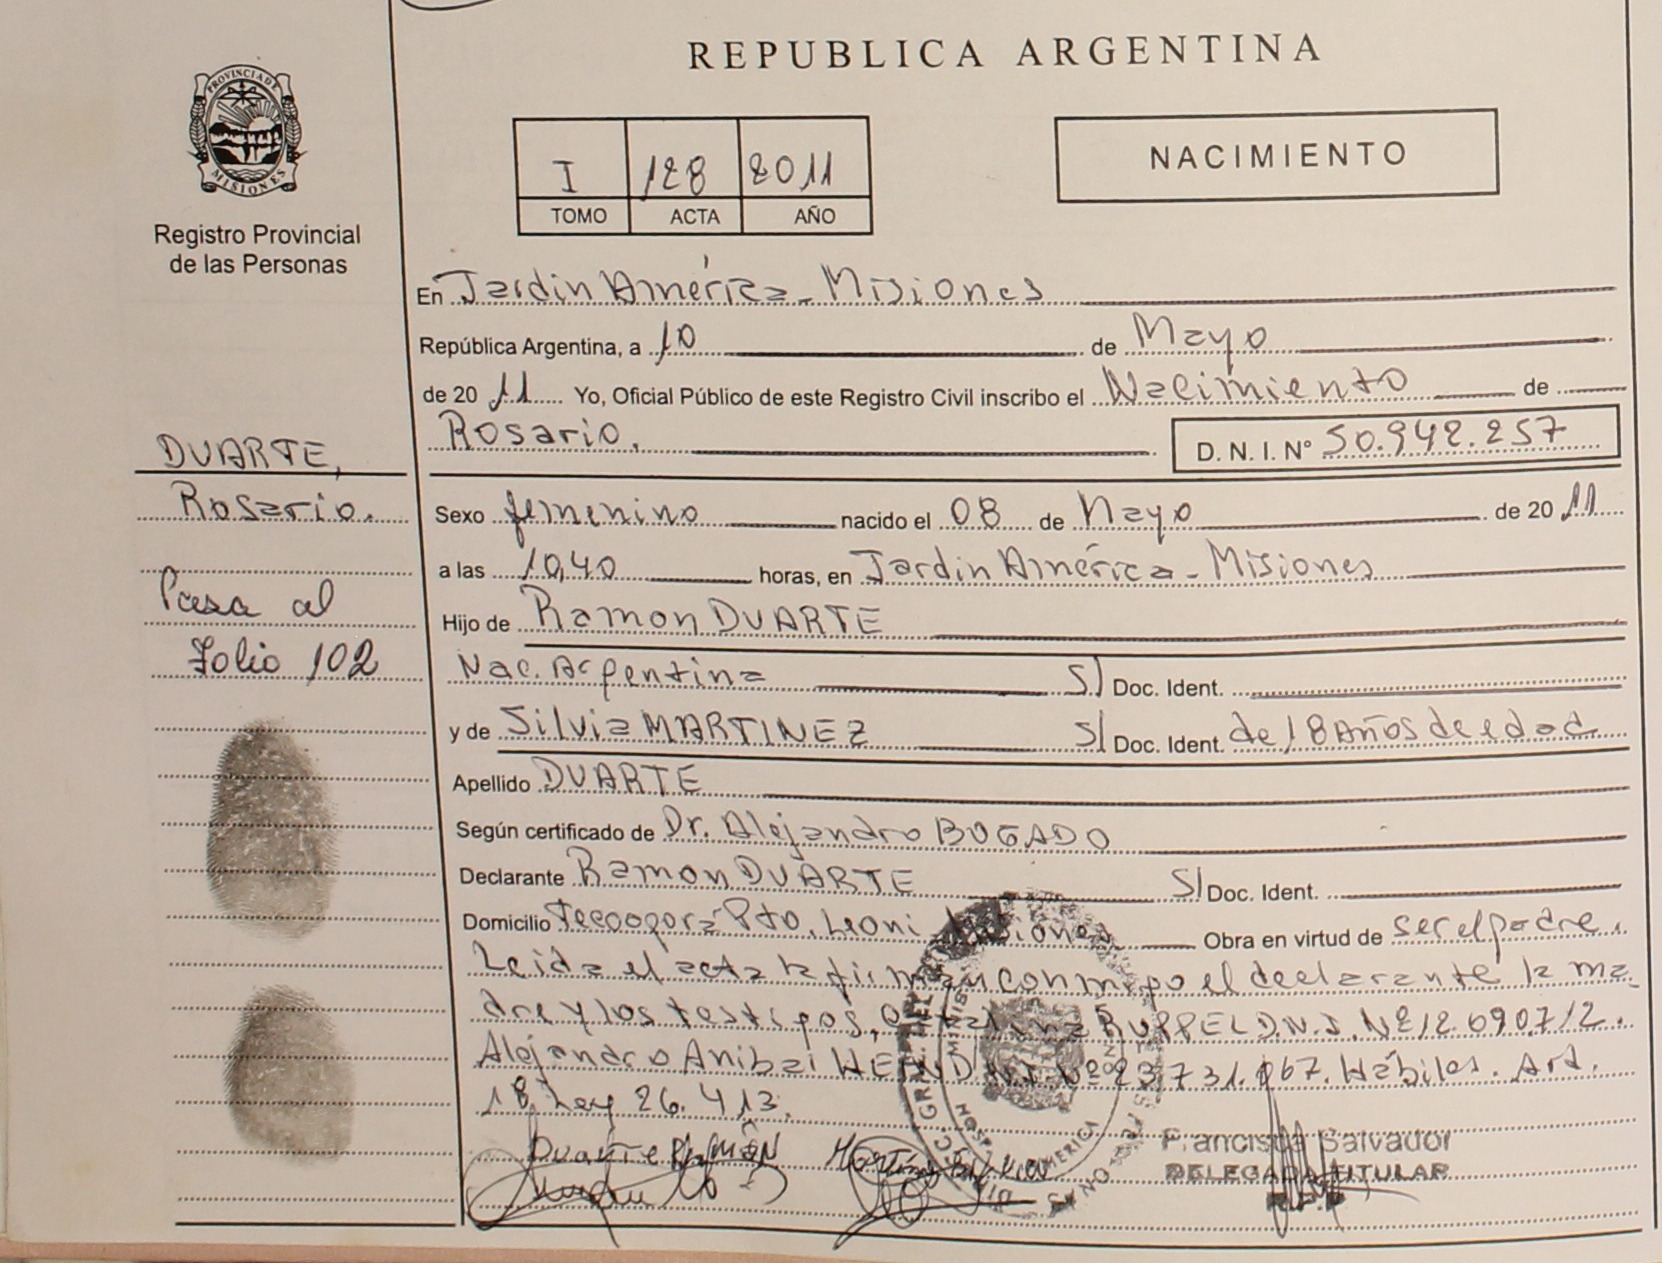 REPUBLICA ARGENTINA
PROVINCIA DE
MISIONES
Registro Provincial
de las Personas
I 128 2011
TOMO ACTA AÑO
NACIMIENTO
En Jardin América - Misiones
República Argentina, a 10 de Mayo
de 20 11 Yo, Oficial Público de este Registro Civil inscribo el Nacimiento de
Rosario. D. N. I. Nº 50.942.257
DUARTE,
Rosario.
Pasa al
folio 102
Sexo femenino nacido el 08 de Mayo de 20 11
a las 10,40 horas, en Jardin América - Misiones
Hijo de Ramon DUARTE
Nac. Argentina S/ Doc. Ident.
y de Silvia MARTINEZ S/ Doc. Ident. de 18 Años de edad
Apellido DUARTE
Según certificado de Dr. Alejandro BOGADO
Declarante Ramon DUARTE S/ Doc. Ident.
Domicilio Pto. Leoni Misiones Obra en virtud de ser el padre.
Leida el acta la firman conmigo el declarante la ma
dre y los testigos, RUPPEL D.N.I. Nº 12.690.712.
Alejandro Anibal D.N.I. Nº 23.731.067. Hábiles. Art.
18, Ley 26.413.
Duarte Ramón
Francisca Salvador
DELEGADA TITULAR
R.P.P